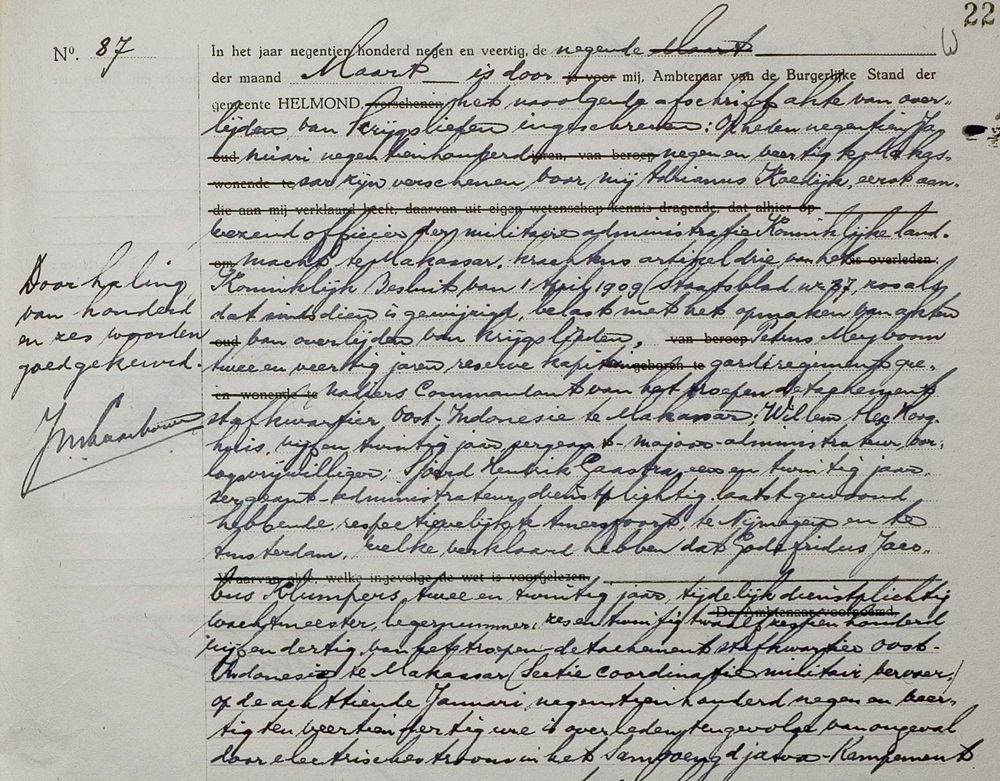 22
Nº. 87
In het jaar negentien honderd negen en veertig, de negende Maart
der maand Maart is door is voor mij, Ambtenaar van de Burgerlijke Stand der
gemeente HELMOND, verschenen het navolgende afschrift akte van over-
lijden van krijgslieden ingeschreven: Op heden negentien Ja
oud nuari negentienhonderd jaren, van beroep negen en veertig te Makas-
wonende te sar zijn verschenen voor mij Adrianus Koedijk, eerst aan-
die aan mij verklaard heeft, daarvan uit eigen wetenschap kennis dragende, dat alhier op
wezend officier der militaire administratie Koninklijke land-
om macht te Makassar, krachtens artikel drie van het is overleden:
Koninklijk Besluit van 1 April 1909 (Staatsblad nr. 87, zoals
dat sindsdien is gewijzigd, belast met het opmaken van akten
oud van overlijden van krijgslieden, van beroep Petrus Meyboom
twee en veertig jaren, reserve kapitein geboren te garderegiment gre-
en wonende te nadiers Commandant van het troepen detachement
stafkwartier Oost-Indonesie te Makassar; Willem Hoog-
huis, vijf en twintig jaar sergeant-majoor-administrateur, oor-
logsvrijwilliger; Sjoerd Hendrik Gaastra, een en twintig jaar
sergeant-administrateur, dienstplichtig, laatst gewoond
hebbende respectievelijk te Amersfoort, te Nijmegen en te
Amsterdam, welke verklaard hebben dat Godefridus Jaco-
Waarvan akte, welke ingevolge de wet is voorgelezen.
bus Klumpers, twee en twintig jaar, tijdelijk dienstplichtig
De Ambtenaar voornoemd,
wachtmeester, legernummer: zes en twintig twaalf zestien honderd
vijf en dertig, van het troepen detachement stafkwartier Oost-
Indonesie te Makassar (Sectie Coordinatie militair vervoer)
op de achttiende Januari negentienhonderd negen en veer-
tig ten veertien dertig ure is overleden tengevolge van ongeval
door electrische stroom in het Kampement
Doorhaling
van honderd
en zes woorden
goedgekeurd.